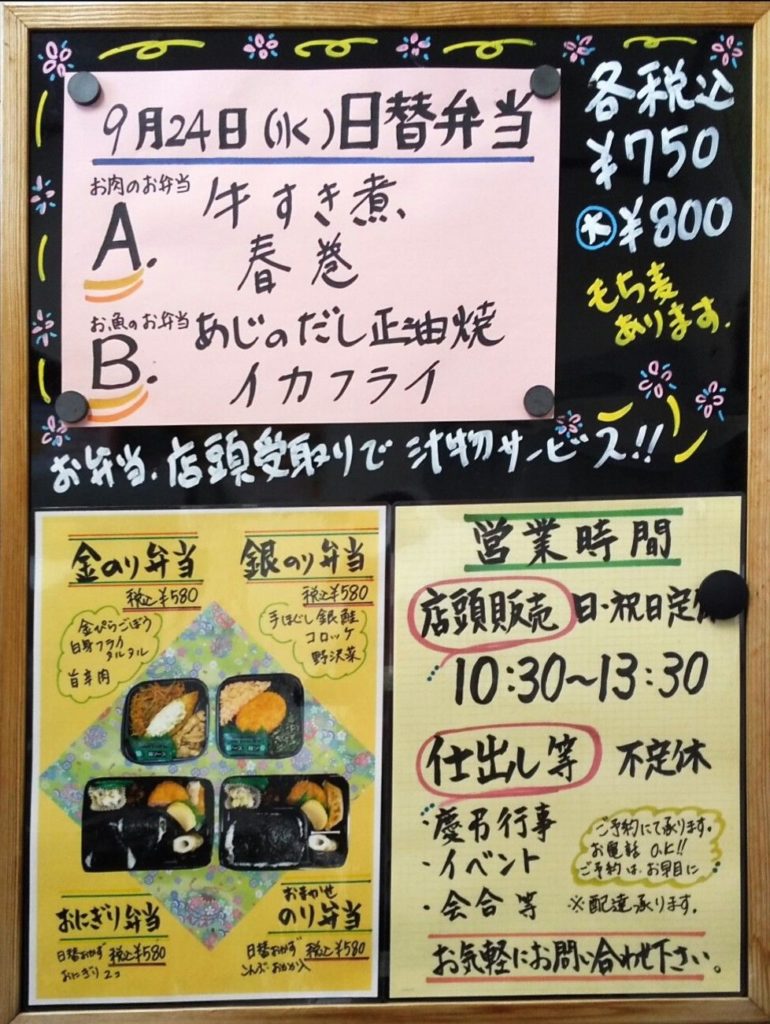 9月24日(水)日替弁当
お肉のお弁当
A.
牛すき煮
春巻
お魚のお弁当
B.
あじのだし正油焼
イカフライ
各税込
¥750
大¥800
もち麦
あります。
お弁当、店頭受取りで 汁物サービス!!
金のり弁当
税込¥580
金ぴらごぼう
白身フライ
タルタル
旨辛肉
銀のり弁当
税込¥580
手ほぐし銀鮭
コロッケ
野沢菜
おにぎり弁当
日替おかず 税込¥580
おにぎり2コ
おまかせ
のり弁当
日替おかず 税込¥580
こんぶ・おかか入
営業時間
店頭販売 日・祝日定休
10:30~13:30
仕出し等 不定休
・慶弔行事
・イベント
・会合等
ご予約にて承ります。
お電話O.K!!
ご予約はお早目に
※配達承ります。
お気軽にお問い合わせ下さい。